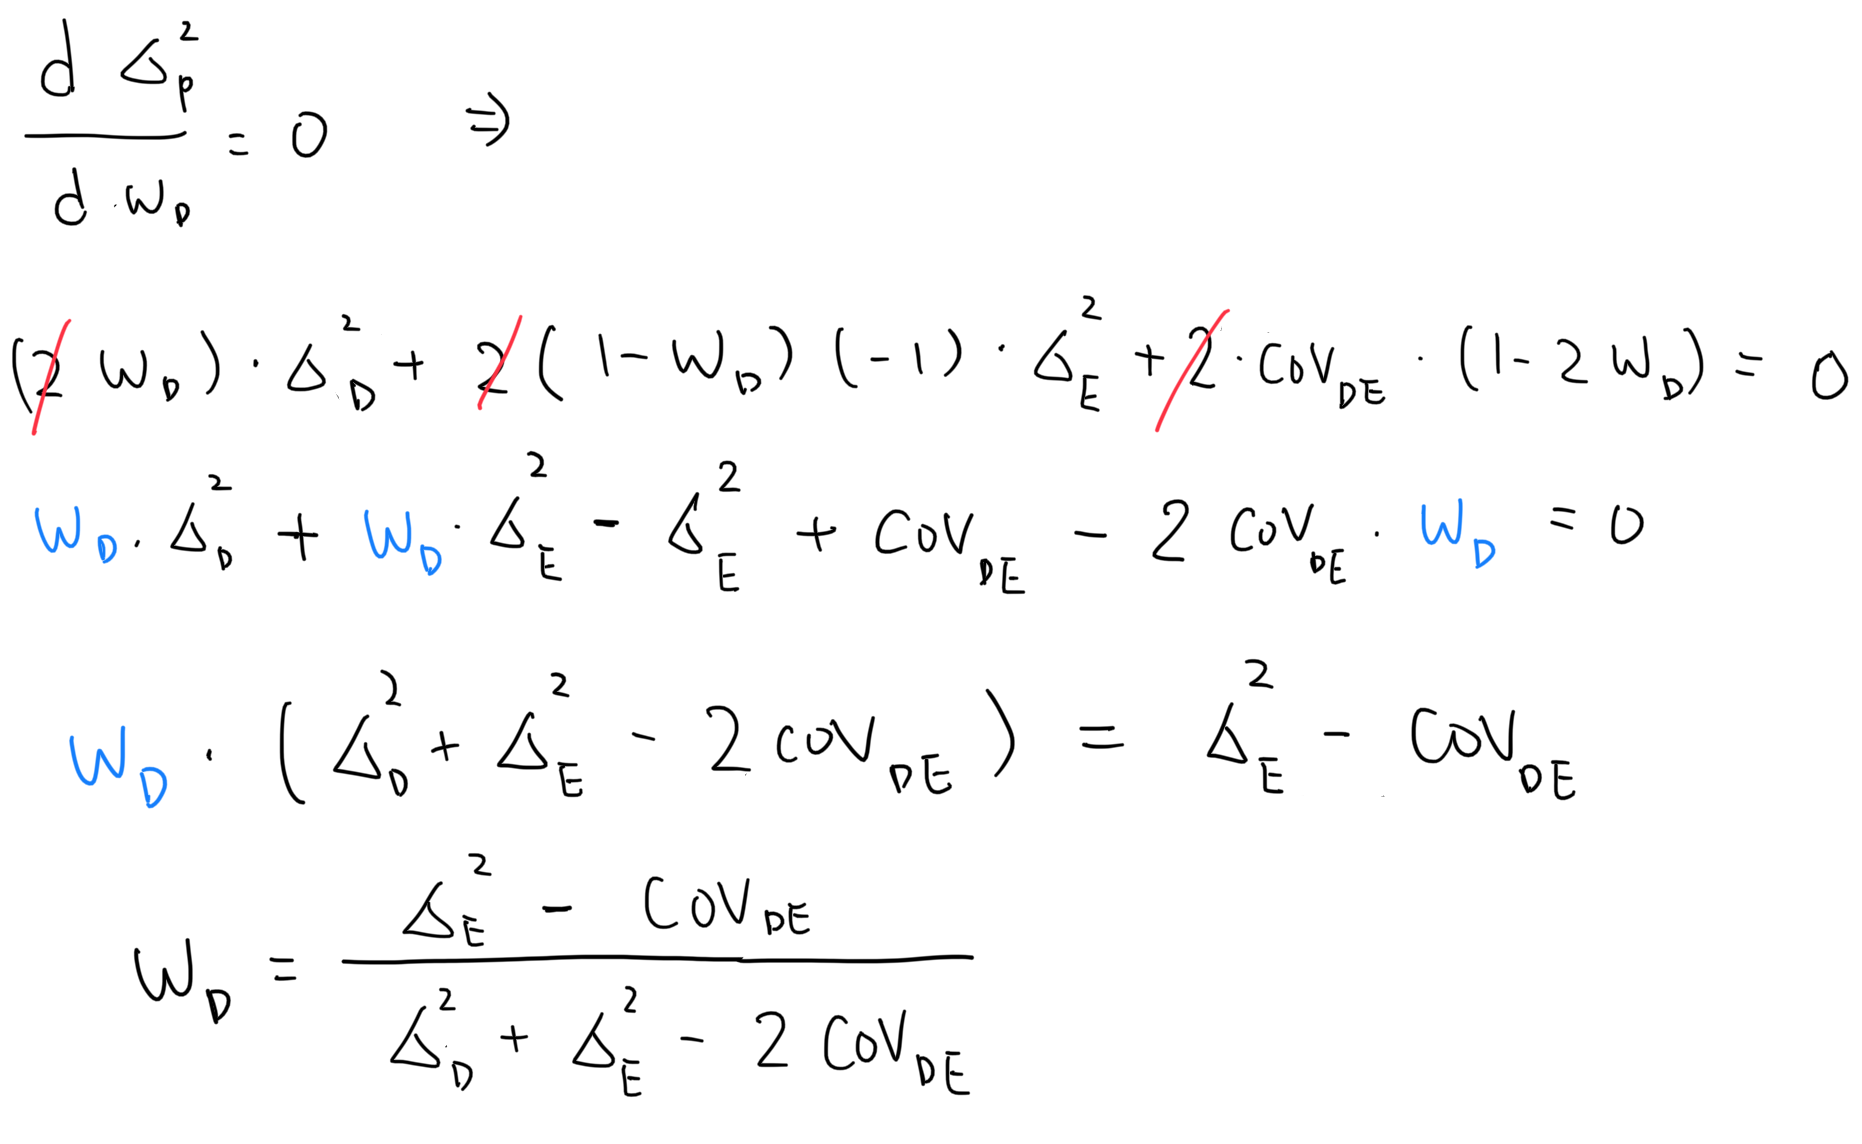 d Δ_p^2 / d·W_D = 0 ⇒
(2 W_D)·Δ_D^2 + 2(1-W_D)(-1)·Δ_E^2 + 2·COV_DE·(1-2W_D) = 0
W_D·Δ_D^2 + W_D·Δ_E^2 - Δ_E^2 + COV_DE - 2 COV_DE·W_D = 0
W_D·(Δ_D^2 + Δ_E^2 - 2 COV_DE) = Δ_E^2 - COV_DE
W_D = (Δ_E^2 - COV_DE) / (Δ_D^2 + Δ_E^2 - 2 COV_DE)